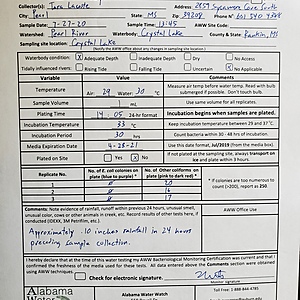 Collector(s): Tara Lacoste Address: 2859 Sycamore Cove South
State MS Zip 39208 Phone N° 601 540 9788
Sample Date: 7-27-20 Sample Time: 11:45 AWW Site Code:
Watershed: Pearl River Waterbody: Crystal Lake County & State: Rankin, MS
Sampling site location: Crystal Lake
(Notify the AWW office about any changes in sampling site location)
Waterbody condition: X Adequate Depth Inadequate Depth Dry No Access
Tidally influenced rivers: Rising Tide Falling Tide Uncertain Not Applicable
Variable Value Comments
Temperature Air 29 Water 30 Measure air temp before water temp. Read with bulb submerged if possible. Don't touch bulb.
Sample Volume 1 mL Use same volume for all replicates.
Plating Time 14:05 24-hr format Incubation begins when samples are plated.
Incubation Temperature 33 °C Keep incubation temperature between 29 and 37°C.
Incubation Period 30 hrs Count bacteria within 30 - 48 hrs of incubation.
Media Expiration Date 4-28-21 Use this date format, Jul/2019 (from the media box).
Plated on Site Yes X No If not plated at the sampling site, always transport on ice and plate within 3 hours.
Replicate No. N° of E. coli colonies on plate (blue to purple) * N° of Other coliforms on plate (pink to dark red) *
1 Ø 20
2 Ø 16
3 Ø 7
* If colonies are too numerous to count (>200), report as 250
Comments: Note evidence of rainfall, runoff within previous 24 hours, unusual smell,
unusual color, cows or other animals in creek, etc. Record results of other tests here, if
conducted (IDEXX, 3M Petrifilm, etc.)
AWW Office Use
Approximately .10 inches rainfall in 24 hours
preceding sample collection.
I hereby declare that at the time of water testing my AWW Bacteriological Monitoring Certification was current and that I
confirmed the freshness of the media used for these tests. All data entered above the Comments section were obtained
using AWW techniques Check for electronic signature
Alabama Water Watch
Toll Free phone: 1-888-844-4785